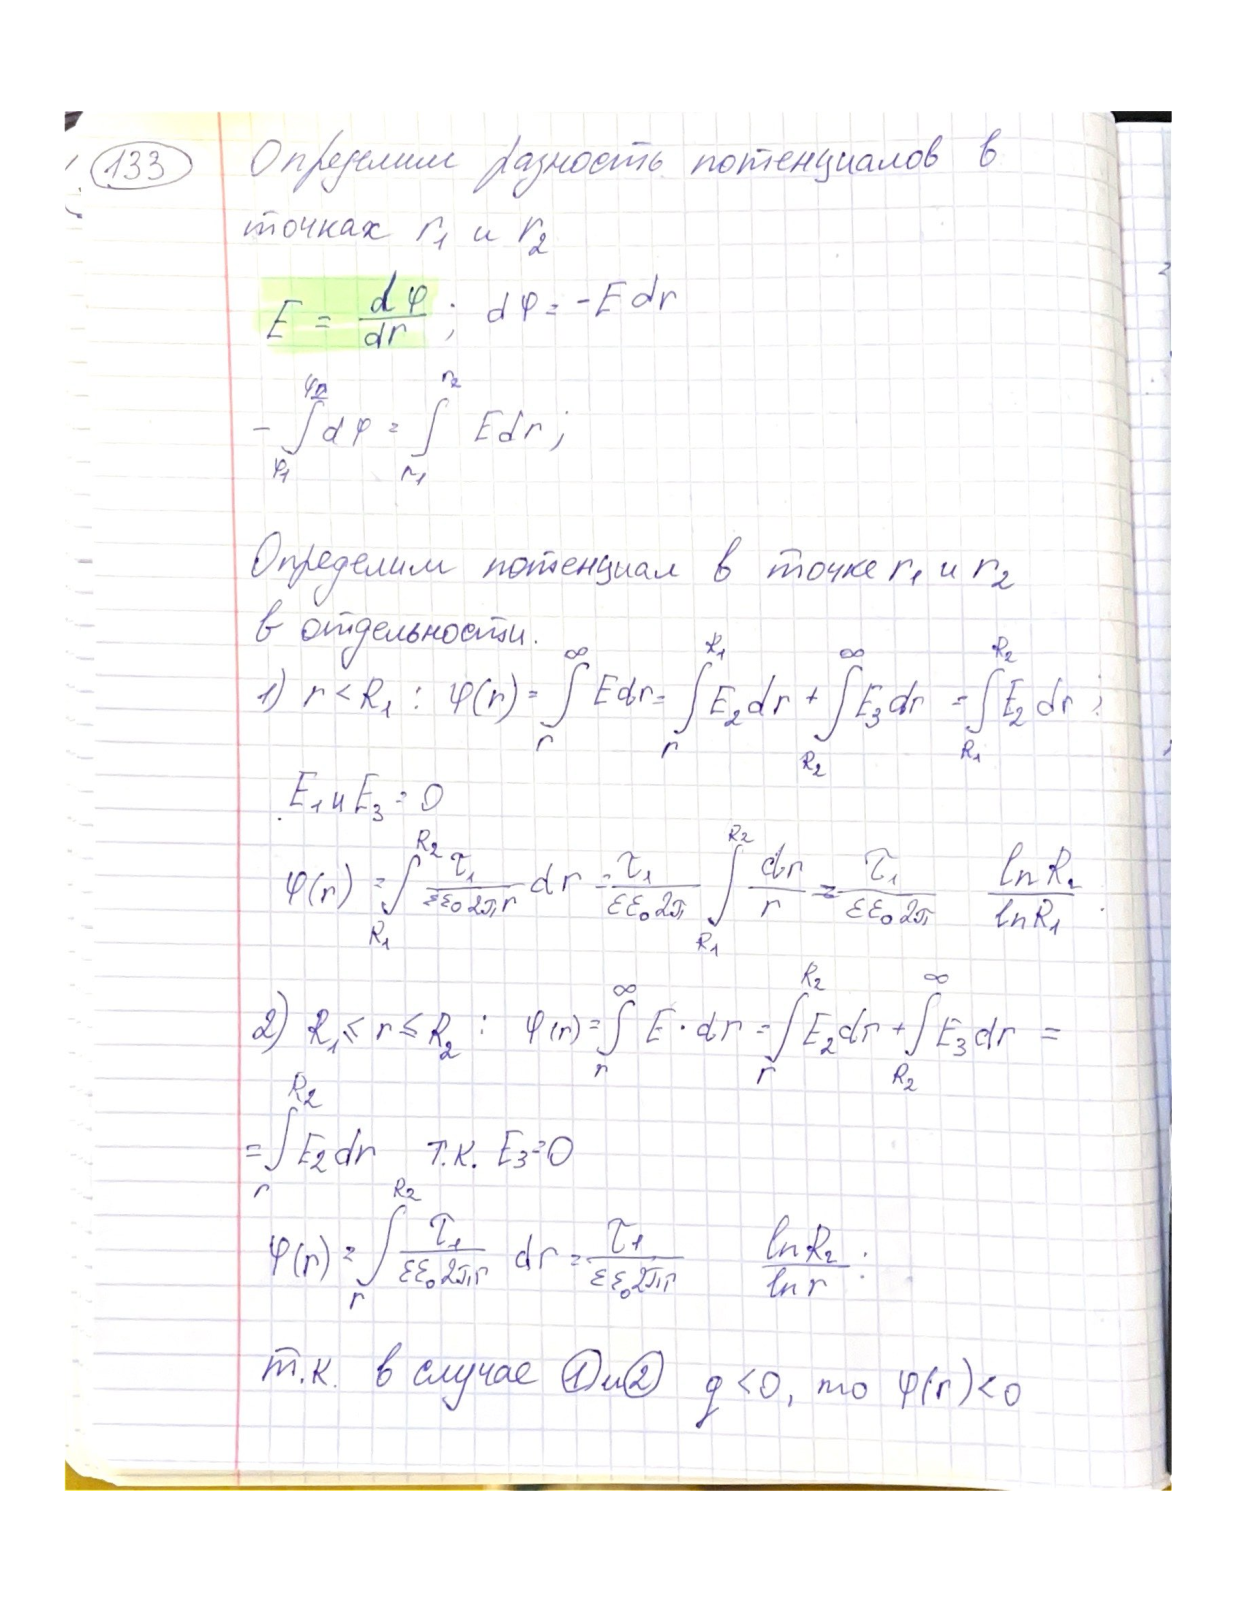 133 Определим разность потенциалов в
точках r₁ и r₂
E = dφ/dr ; dφ = -Edr
-∫_{φ₁}^{φ₂} dφ = ∫_{r₁}^{r₂} Edr;
Определим потенциал в точке r₁ и r₂
в отдельности.
1) r < R₁ : φ(r) = ∫_{r}^{∞} Edr = ∫_{r}^{R₁} E₂dr + ∫_{R₂}^{∞} E₃dr = ∫_{R₁}^{R₂} E₂dr;
E₁ и E₃ = 0
φ(r) = ∫_{R₁}^{R₂} τ₁/(εε₀2πr) dr = τ₁/(εε₀2π) ∫_{R₁}^{R₂} dr/r = τ₁/(εε₀2π) lnR₂/lnR₁.
2) R₁ ≤ r ≤ R₂ : φ(r) = ∫_{r}^{∞} E·dr = ∫_{r}^{R₂} E₂dr + ∫_{R₂}^{∞} E₃dr =
= ∫_{r}^{R₂} E₂dr т.к. E₃=0
φ(r) = ∫_{r}^{R₂} τ₁/(εε₀2πr) dr = τ₁/(εε₀2πr) lnR₂/lnr :
т.к. в случае ① и ② q<0, то φ(r)<0